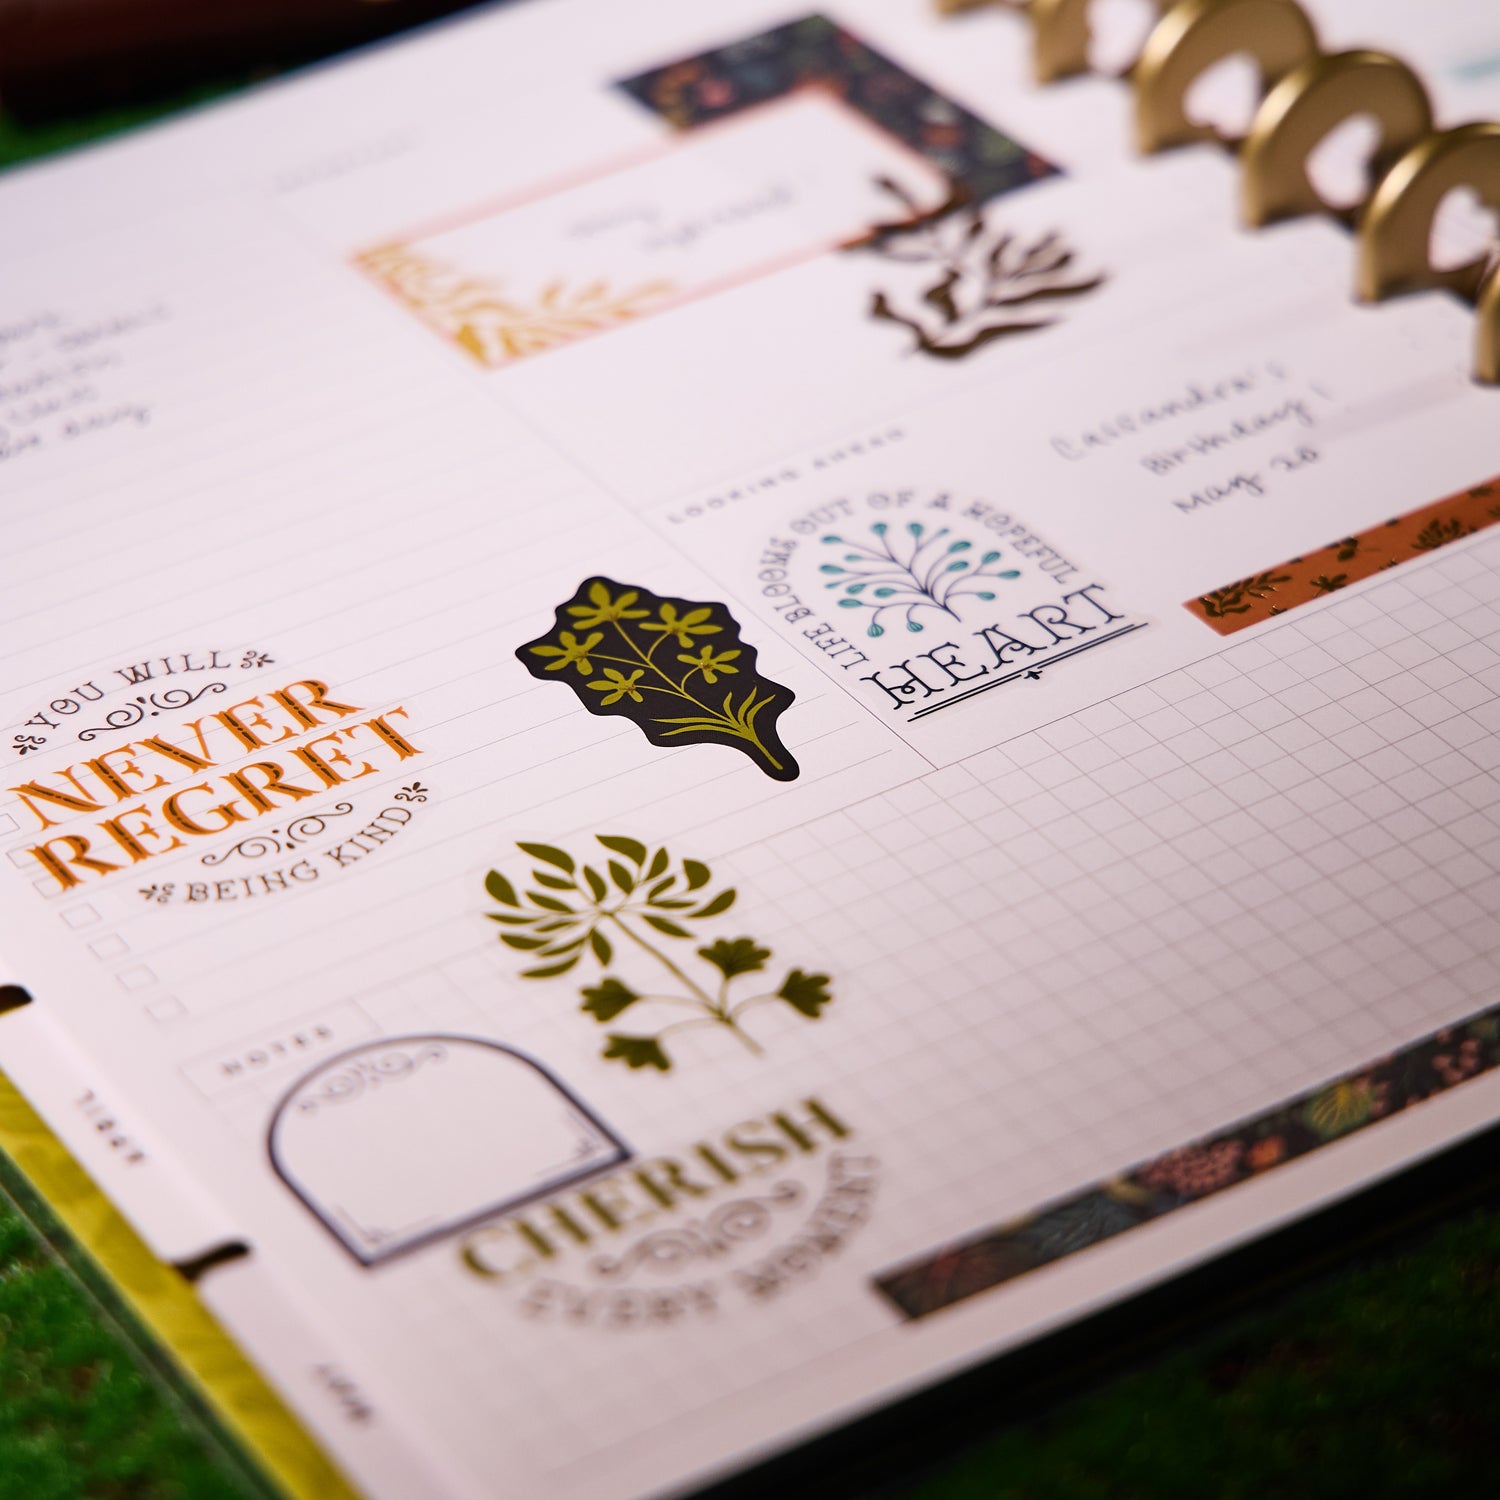 LOOKING AHEAD
Cassandra's
Birthday!
May 20
LIFE BLOOMS OUT OF A HOPEFUL
HEART
YOU WILL
NEVER
REGRET
BEING KIND
NOTES
CHERISH
EVERY MOMENT
APRIL
MAY